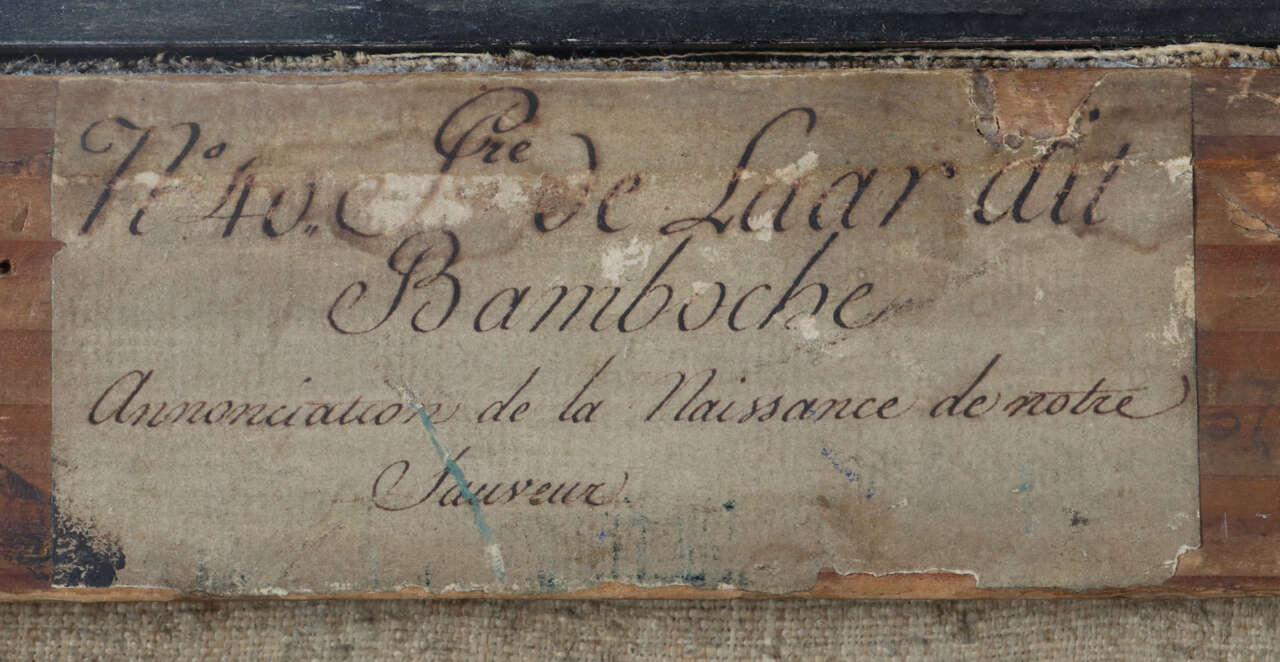 N° 40. Pre de Laar dit
Bamboche
Annonciation de la Naissance de notre
Sauveur